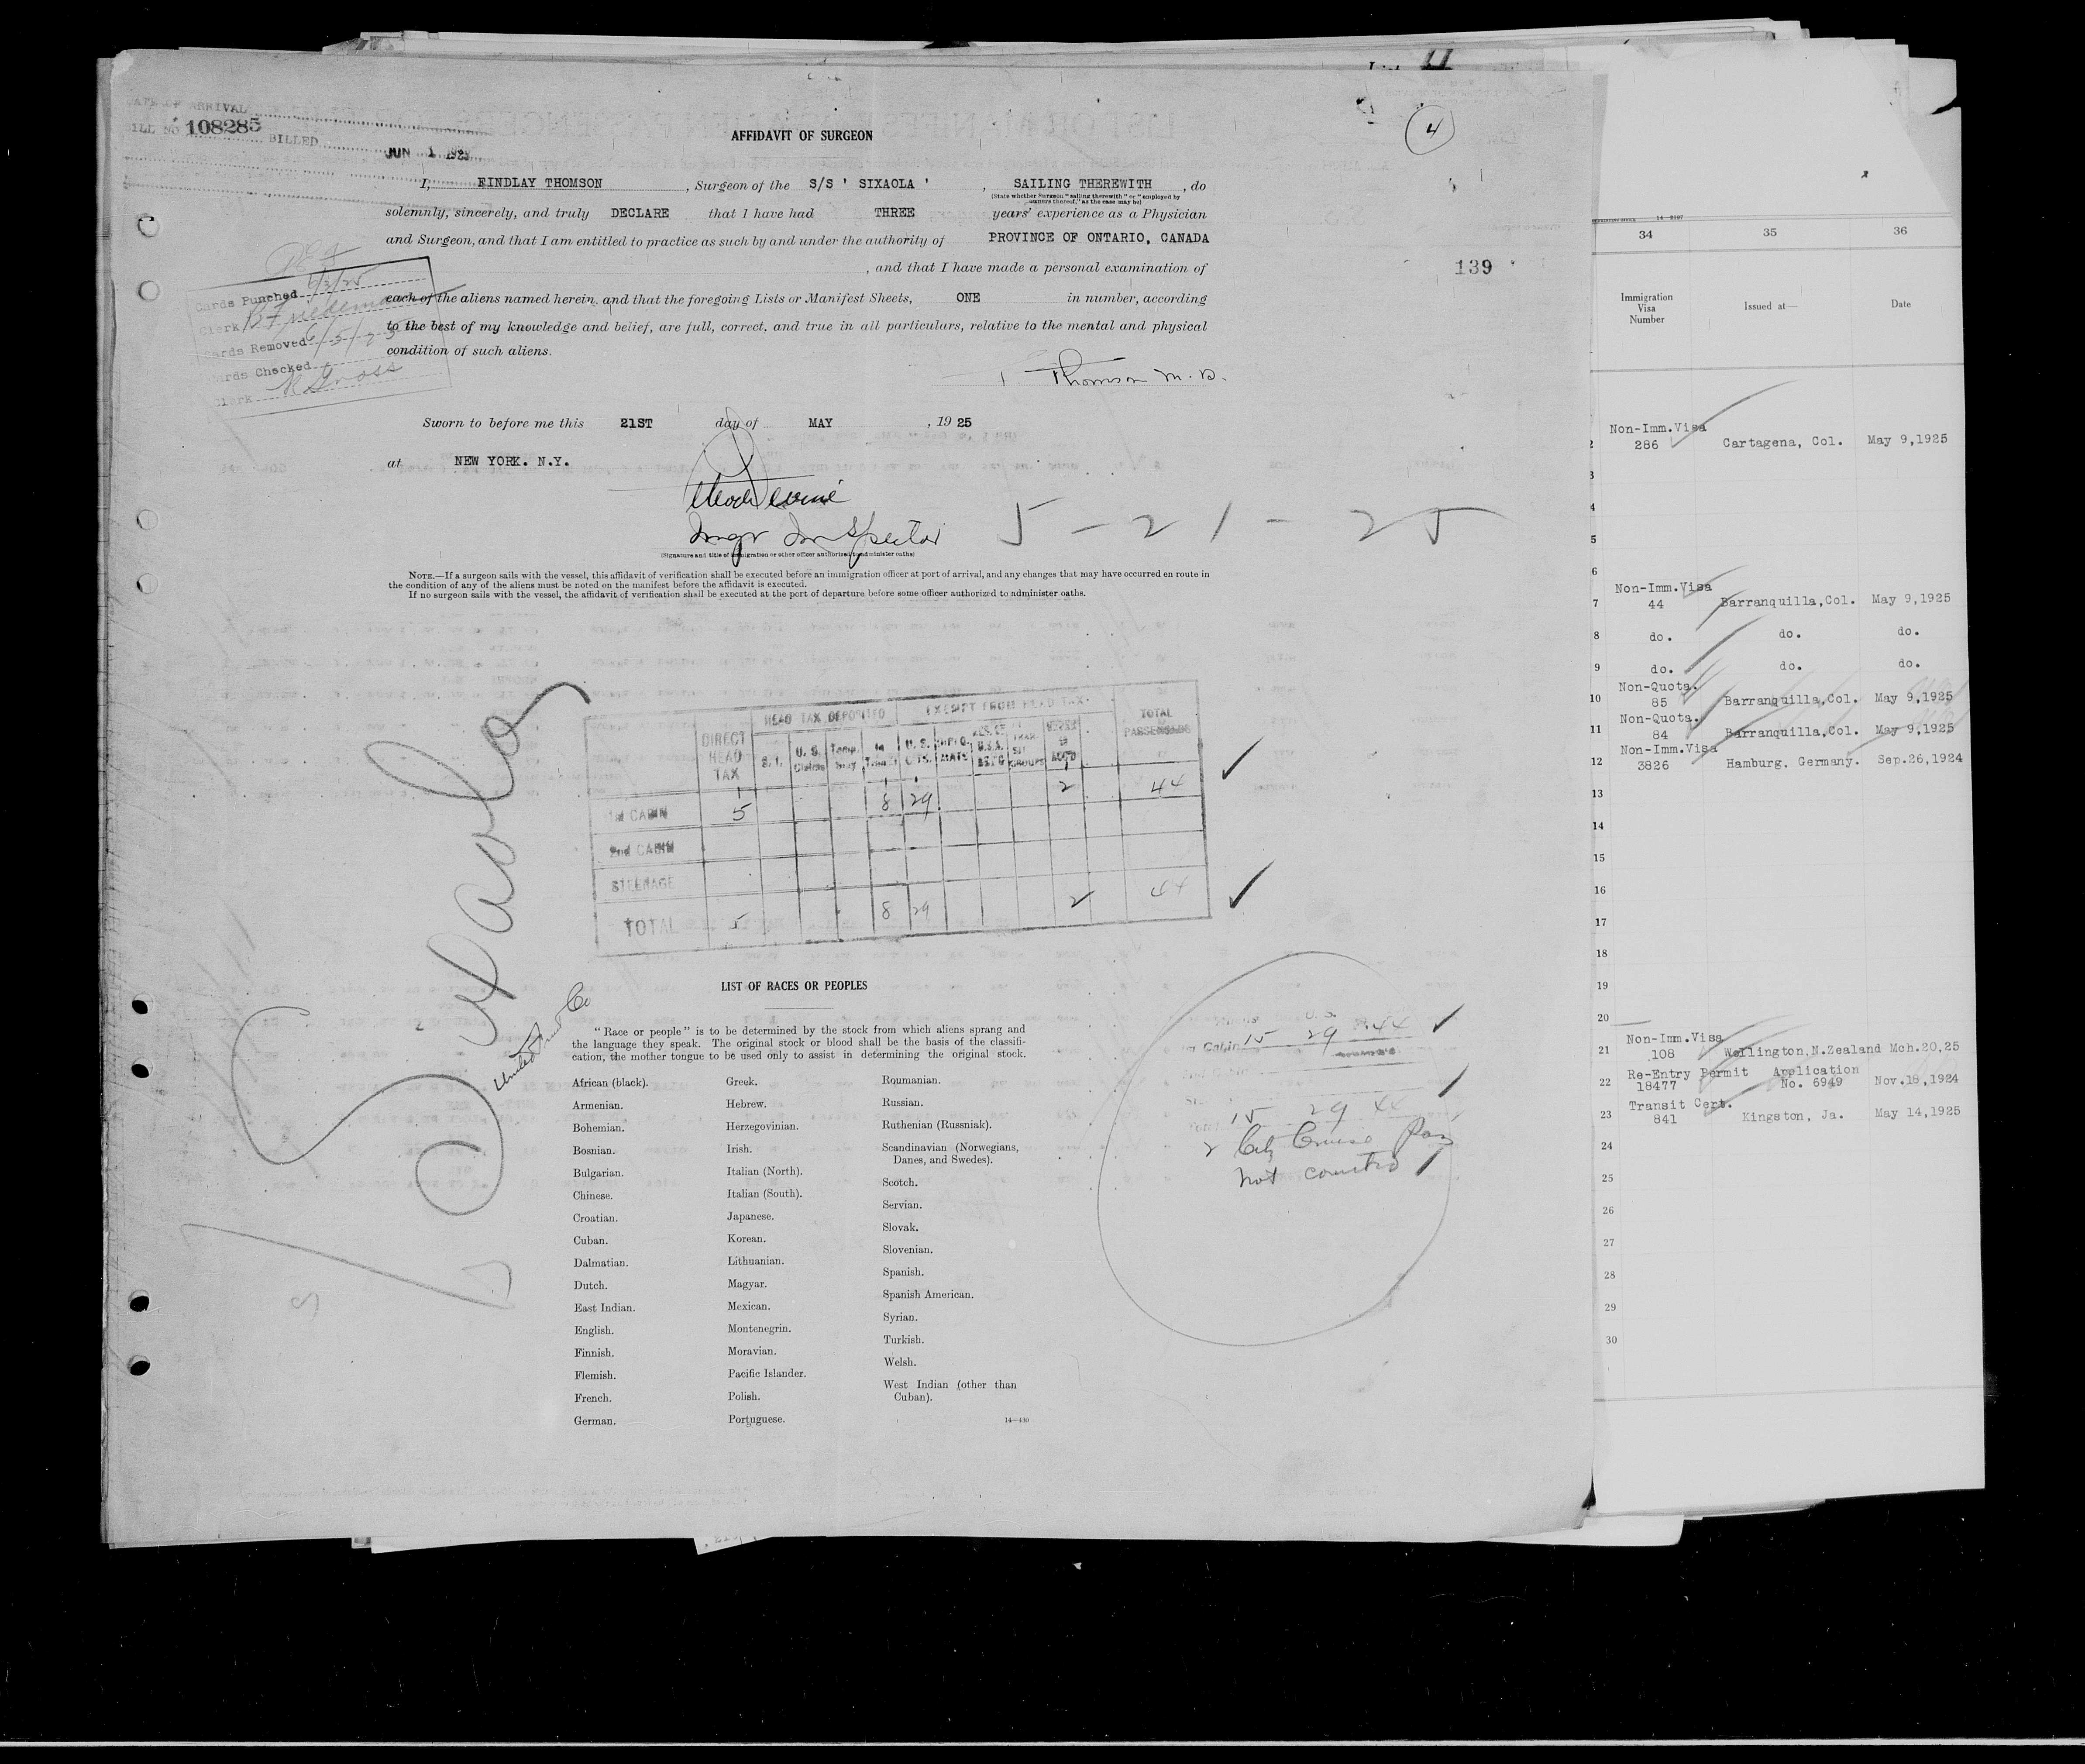 DATE OF ARRIVAL
BILL NO 108285 BILLED
JUN 1 1925
AFFIDAVIT OF SURGEON
4
I, FINDLAY THOMSON, Surgeon of the S/S ' SIXAOLA ', SAILING THEREWITH, do
(State whether Surgeon "sailing therewith" or "employed by
owners thereof," as the case may be)
solemnly, sincerely, and truly DECLARE that I have had THREE years' experience as a Physician
and Surgeon, and that I am entitled to practice as such by and under the authority of PROVINCE OF ONTARIO, CANADA
, and that I have made a personal examination of
139
each of the aliens named herein, and that the foregoing Lists or Manifest Sheets, ONE in number, according
to the best of my knowledge and belief, are full, correct, and true in all particulars, relative to the mental and physical
condition of such aliens.
Thomson M.D.
Cards Punched 6/3/25
Clerk B Friedeman
Cards Removed 6/5/25
Cards Checked
Clerk R Gross
Sworn to before me this 21ST day of MAY, 1925
at NEW YORK. N.Y.
Imgr Inspector 5-21-25
(Signature and title of immigration or other officer authorized to administer oaths)
NOTE.—If a surgeon sails with the vessel, this affidavit of verification shall be executed before an immigration officer at port of arrival, and any changes that may have occurred en route in
the condition of any of the aliens must be noted on the manifest before the affidavit is executed.
If no surgeon sails with the vessel, the affidavit of verification shall be executed at the port of departure before some officer authorized to administer oaths.
HEAD TAX DEPOSITED EXEMPT FROM HEAD TAX
DIRECT HEAD TAX S.I. U.S. Claims Temp'rary In Transit U.S. CITS. DIPLOMATS TOTAL PASSENGERS
1st CABIN 5 8 29 2 44
2nd CABIN
STEERAGE
TOTAL 5 8 29 2 44
Sixaola
United Fruit Co
LIST OF RACES OR PEOPLES
"Race or people" is to be determined by the stock from which aliens sprang and
the language they speak. The original stock or blood shall be the basis of the classifi-
cation, the mother tongue to be used only to assist in determining the original stock.
African (black).
Armenian.
Bohemian.
Bosnian.
Bulgarian.
Chinese.
Croatian.
Cuban.
Dalmatian.
Dutch.
East Indian.
English.
Finnish.
Flemish.
French.
German.
Greek.
Hebrew.
Herzegovinian.
Irish.
Italian (North).
Italian (South).
Japanese.
Korean.
Lithuanian.
Magyar.
Mexican.
Montenegrin.
Moravian.
Pacific Islander.
Polish.
Portuguese.
Roumanian.
Russian.
Ruthenian (Russniak).
Scandinavian (Norwegians,
Danes, and Swedes).
Scotch.
Servian.
Slovak.
Slovenian.
Spanish.
Spanish American.
Syrian.
Turkish.
Welsh.
West Indian (other than
Cuban).
14—430
U.S.
Cabin 15 29 44
Total 15 29 44
2 Cits Cruise Pass
not counted
14—2197
34 35 36
Immigration
Visa
Number
Issued at—
Date
2 Non-Imm.Visa
286 Cartagena, Col. May 9,1925
3
4
5
6
Non-Imm.Visa
7 44 Barranquilla,Col. May 9,1925
8 do. do. do.
9 do. do. do.
Non-Quota.
10 85 Barranquilla,Col. May 9,1925
Non-Quota.
11 84 Barranquilla,Col. May 9,1925
Non-Imm.Visa
12 3826 Hamburg. Germany. Sep.26,1924
13
14
15
16
17
18
19
20
Non-Imm.Visa
21 108 Wellington,N.Zealand Mch.20,25
Re-Entry Permit Application
22 18477 No. 6949 Nov.18,1924
Transit Cert.
23 841 Kingston, Ja. May 14,1925
24
25
26
27
28
29
30